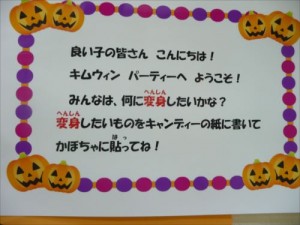 良い子の皆さん こんにちは!
キムウィン パーティーへ ようこそ!
みんなは、何に変身したいかな?
変身したいものをキャンディーの紙に書いて
かぼちゃに貼ってね!